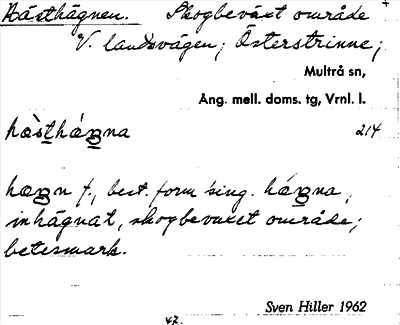 Hästhägnen. Skogbeväxt område
V. landsvägen; Österstrinne;
Multrå sn,
Ång. mell. doms. tg, Vrnl. l.
hæ̀sthágna 214
hægn f., best. form sing. hágna,
inhägnat, skogbevuxet område;
betesmark.
Sven Hiller 1962